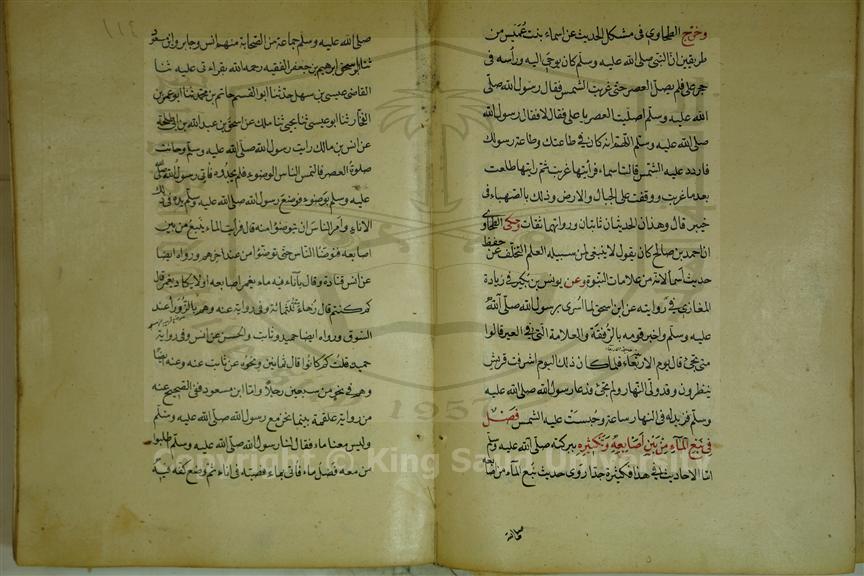 وخرج الطحاوي في مشكل الحديث عن اسماء بنت عميس من
طريقين ان النبي صلى الله عليه وسلم كان يوحى اليه ورأسه في
حجر علي فلم يصل العصر حتى غربت الشمس فقال رسول الله صلى
الله عليه وسلم اصليت العصر يا علي فقال لا فقال رسول الله
صلى الله عليه وسلم اللهم انه كان في طاعتك وطاعة رسولك
فاردد عليه الشمس قالت اسماء فرأيتها غربت ثم رأيتها طلعت
بعد ما غربت ووقفت على الجبال والارض وذلك بالصهباء في
خيبر قال وهذان الحديثان ثابتان ورواتهما ثقات وحكى الطحاوي
ان احمد بن صالح كان يقول لا ينبغي لمن سبيله العلم التخلف عن حفظ
حديث اسماء لانه من علامات النبوة وعن يونس بن بكير في زيادة
المغازي في روايته عن ابن اسحق لما اسري برسول الله صلى الله
عليه وسلم واخبر قومه بالرفقة والعلامة التي في العير قالوا
متى تجئ قال يوم الاربعاء فلما كان ذلك اليوم اشرفت قريش
ينظرون وقد ولى النهار ولم تجئ فدعا رسول الله صلى الله عليه
وسلم فزيد له في النهار ساعة وحبست عليه الشمس فصل
في نبع الماء من بين اصابعه وتكثيره ببركته صلى الله عليه وسلم
اما الاحاديث في هذا فكثيرة جدا روى حديث نبع الماء من اصابعه
صلى الله عليه وسلم جماعة من الصحابة منهم انس وجابر وابن مسعود
ثنا ابو اسحق ابرهيم بن جعفر الفقيه رحمه الله بقراءتي عليه ثنا
القاضي عيسى بن سهل حدثنا ابو القسم حاتم بن محمد ثنا ابو عمر بن
الفخار ثنا ابو عيسى ثنا يحيى ثنا ملك عن اسحق بن عبد الله بن ابي طلحة
عن انس بن مالك رايت رسول الله صلى الله عليه وسلم وحانت
صلوة العصر فالتمس الناس الوضوء فلم يجدوه فاتي رسول الله صلى الله
عليه وسلم بوضوء فوضع رسول الله صلى الله عليه وسلم يده في ذلك
الاناء وامر الناس ان يتوضؤا منه قال فرايت الماء ينبع من بين
اصابعه فتوضأ الناس حتى توضؤا من عند اخرهم ورواه ايضا
عن انس قتادة وقال باناء فيه ماء يغمر اصابعه اولا يكاد يغمر قال
كم كنتم قال زهاء ثلثمائة وفي رواية عنه وهم بالزوراء عند
السوق ورواه ايضا حميد وثابت والحسن عن انس وفي رواية
حميد قلت كم كانوا قال ثمانين ونحوه عن ثابت عنه وعنه ايضا
وهم في نحو من سبعين رجلا واما ابن مسعود ففي الصحيح عنه
من رواية علقمة بينما نحن مع رسول الله صلى الله عليه وسلم
وليس معنا ماء فقال لنا رسول الله صلى الله عليه وسلم اطلبوا
من معه فضل ماء فاتي بماء فصبه في اناء ثم وضع كفه فيه
1957
Copyright © King Saud University